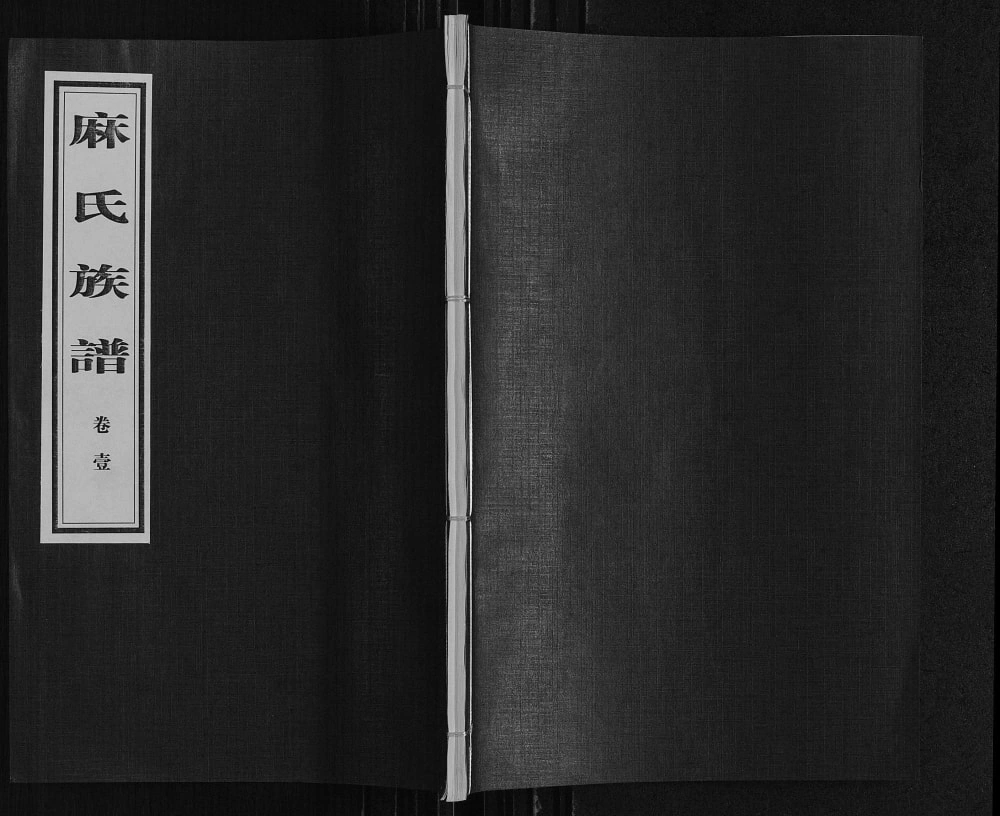 麻氏族譜
卷壹